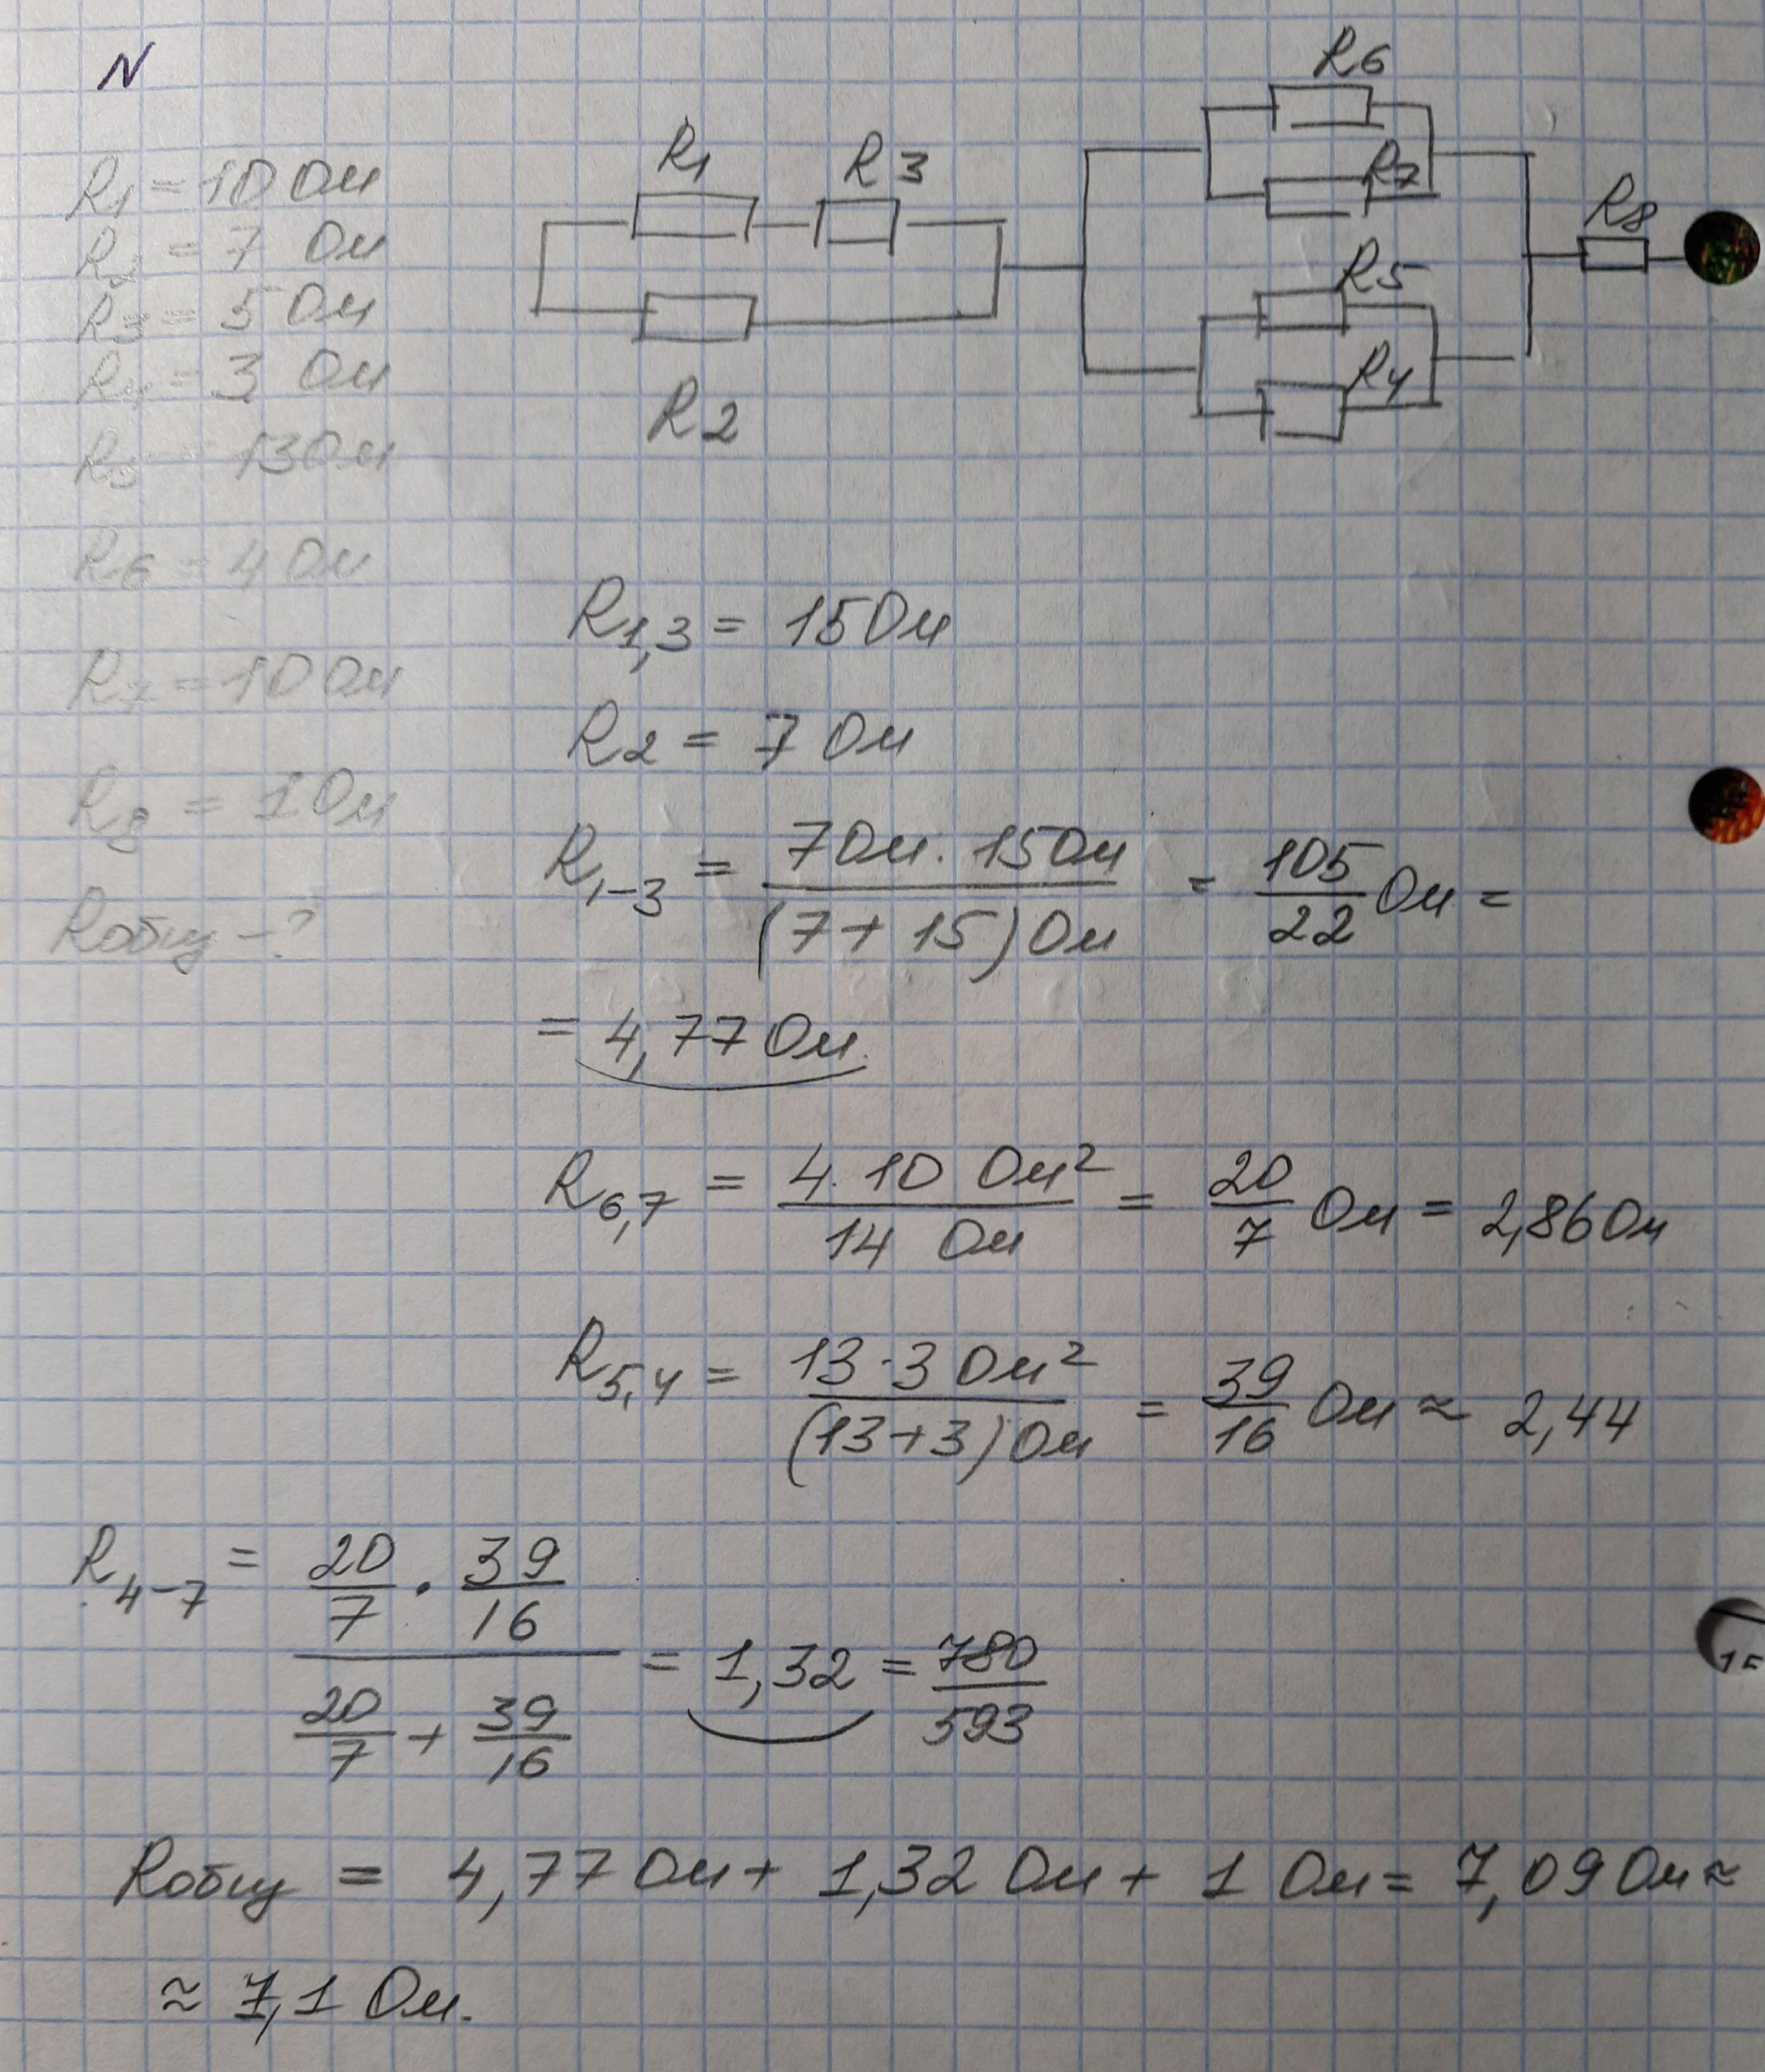 N
R1 = 10 Ом
R2 = 7 Ом
R3 = 5 Ом
R4 = 3 Ом
R5 = 13 Ом
R6 = 4 Ом
R7 = 10 Ом
R8 = 1 Ом
Rобщ - ?
R1 R3
R2
R6
R7
R5
R4
R8
R1,3 = 15 Ом
R2 = 7 Ом
R1-3 = 7 Ом · 15 Ом / (7 + 15) Ом = 105/22 Ом =
= 4,77 Ом.
R6,7 = 4 · 10 Ом² / 14 Ом = 20/7 Ом = 2,86 Ом
R5,4 = 13 · 3 Ом² / (13+3) Ом = 39/16 Ом ≈ 2,44
R4-7 = (20/7 · 39/16) / (20/7 + 39/16) = 1,32 = 780/593
Rобщ = 4,77 Ом + 1,32 Ом + 1 Ом = 7,09 Ом ≈
≈ 7,1 Ом.